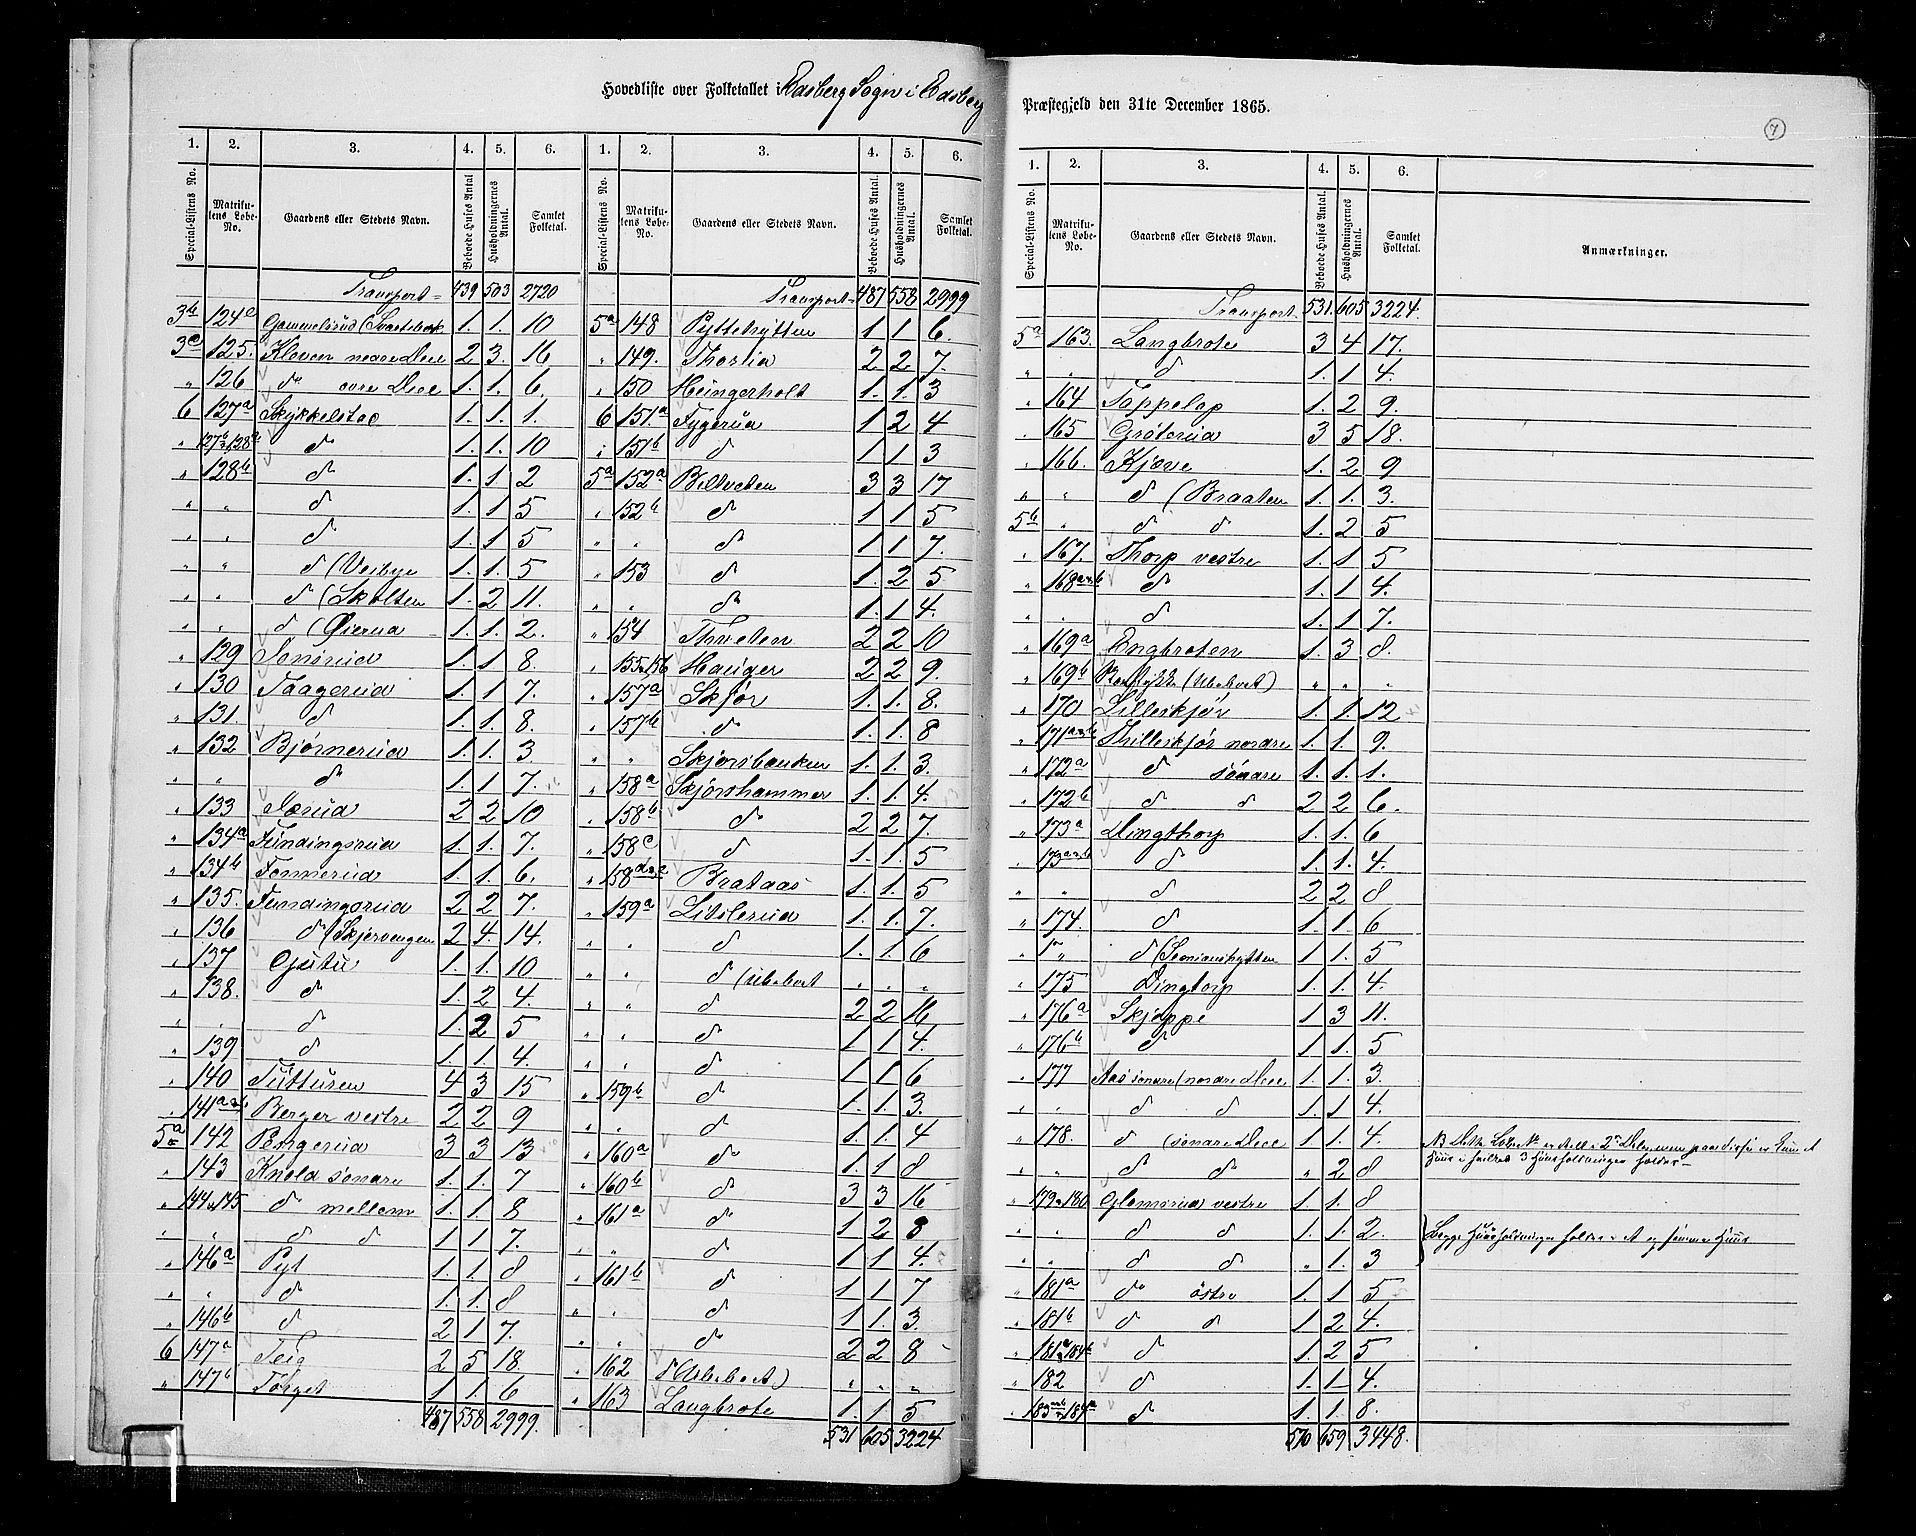 Hovedliste over Folketallet i Edsberg Sogn i Edsberg Præstegjeld den 31te December 1865.
7
1. 2. 3. 4. 5. 6.
Special-Listens No. Matrikulens Løbe-No. Gaardens eller Stedets Navn. Beboede Huses Antal Husholdningernes Antal. Samlet Folketal.
Transport 439 503 2720
3b 124c Gammelsrud (Svartebæk 1. 1. 10
3c 125. Kloven nordre Deel 2 3. 16
" 126 do Deel 1. 1. 6.
6 127a Skykkelstad 1. 1. 1.
" 127b, 128a do 1. 1. 10
" 128b do 1. 1 2
" " do 1. 1 5
" " do 1. 1 5
" " do (Vesbye 1. 1. 5
" " do (Skolten 1. 2 11.
" " do (Øierud 1. 1. 2.
" 129 1. 1 8.
" 130 Taagerud 1. 1 7.
" 131. do 1. 1. 8.
" 132 Bjørnerud 1. 1. 3
" " do 1. 1 7.
" 133 2 2 10
" 134a Fundingsrud 1. 1. 7.
" 134b Fonnerud 1. 1 6.
" 135. Fundingsrud 2 2 7.
" 136 do (Skjervengen 2 4. 14.
" 137 Gutu 1. 1. 10
" 138. do 1. 2 4.
" " do 1. 2 5
" 139 do 1. 1 4.
" 140 Tutturen 4 3 15
" 141a & b Berger vestre 2 2 9
5a 142 Pengerud 3 3 13
" 143 Knola søndre 1. 1. 7
" 144 & 145 do mellem 1. 1 8
" " do do 1 1 7.
" 146a Pyt 1. 1. 8
" " do 1. 1. 8
" 146b do 2 1 7.
6 147a Teig 2 5 18.
" 147b Torget 1 1 6
487 558 2999.
1. 2. 3. 4. 5. 6.
Special-Listens No. Matrikulens Løbe-No. Gaardens eller Stedets Navn. Beboede Huses Antal. Husholdningernes Antal. Samlet Folketal.
Transport 487 558 2999
5a 148 Pyttehytten 1 1 6.
" 149. Thorlia 2 2 7.
" 150 Heingerholt 1. 1. 3
6 151a Fygerud 1 2 4
" 151b do 1 1 3
5a 152a Biltveten 3 3 17
" 152b do 1 1 5
" " do 1 1 7.
" 153 do 1. 2 5
" " do 1. 1 4.
" 154 Thveten 2 2 10
" 155 & 156 Hauger 2 2 9.
" 157a Skjør 1. 1. 8.
" 157b do 1. 1 8
" " Skjørsbakken 1. 1. 3.
" 158a Skjørshammer 1. 1. 4.
" 158b do 2 2 7.
" 158c do 1. 1. 5
" 158d & e Brataas 1. 1. 5
" 159a Lislerud 1. 1. 7.
" " do 1. 1. 6
" " do (Ubeboet " " "
" " do 2 2 16
" " do 1 1 4.
" " do 1 1 6
" 159b do 1. 1. 3.
" " do 1. 1. 4
" 160a do 1. 1 8
" 160b do 3 3 16
" 161a do 1 2 8
" " do 1 1 4.
" 161b do 1 1 7
" " do 1 1. 3.
" " do 2 2 8
" 162 do (Ubeboet) " " "
" 163 Langbrote 1. 1. 5
531 605 3224
1. 2. 3. 4. 5. 6.
Special-Listens No. Matrikulens Løbe-No. Gaardens eller Stedets Navn. Beboede Huses Antal. Husholdningernes Antal. Samlet Folketal. Anmærkninger.
Transport. 531. 605 3224.
5a 163. Langbrote 3 4 17.
" " do 1. 1 4.
" 164 Tappelap 1. 2 9.
" 165 Grøterud 3 5 18.
" 166. Kjøve 1. 2 9
" " do (Braaten 1. 1. 3.
5b " do do 1. 2 5
" 167. Thorp vestre 1. 1 5
" 168a & b do 1. 1 4.
" " do 1. 1 7.
" 169a Engbroten 1. 3 8.
" 169b (Ubeboet) " " "
" 170 Lilleskjør 1. 1. 12
" 171a & b Thilleskjør nordre 1. 1. 9.
" 172a do søndre 1. 1. 1.
" 172b do do 2 2 6.
" 173a Dingthorp 1. 1. 6
" 173a & b do 1. 1. 4.
" " do 2 2 8
" 174. do 1. 1 6
" " do (Simianshytten 1. 1. 5
" 175 Dingtorp 1. 1 4.
" 176a Skjøppe 1 3 11.
" 176b do 1 1. 5
" 177 Aas søndre (nordre Deel 1. 1. 3.
" " do do 1. 1 4.
" 178. do (søndre Deel 1 1. 4.
" " do do " 2 8
" 179 & 180 Glamsrud vestre 1. 1. 8
" " do do 1. 1. 2.
" " do do " 1. 3
" 181a do østre 1. 1 5
" 181b do do 1 2 4.
" 181a & 184b do 1. 2 5
" 182 do 1. 1 4.
" 183a & b & 184a do 1. 1. 8.
570 659 3448.
NB Dette Løbe No er deelt i 2 Dele, men paa disse er kun et
Huus i hvilket 3 Huusholdninger holdes
Begge Huusholdninger holdes i et og samme Huus